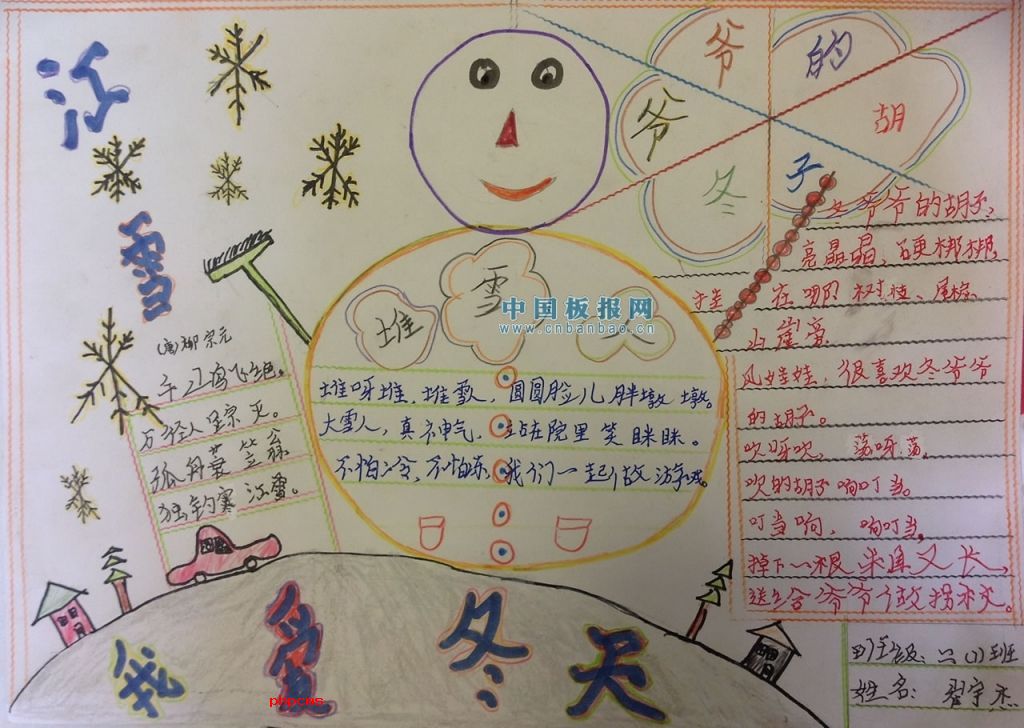 江
雪
(唐)柳宗元
千山鸟飞绝。
万径人踪灭。
孤舟蓑笠翁
独钓寒江雪。
堆
雪
人
中国板报网
www.cnbanbao.cn
堆呀堆,堆雪人,圆圆脸儿胖墩墩。
大雪人,真神气,站在院里笑眯眯。
不怕冷,不怕冻,我们一起做游戏。
冬
爷
爷
的
胡
子
冬爷爷的胡子,
亮晶晶,硬梆梆
挂在哪?树枝、尾檐、
山崖旁
风娃娃,很喜欢冬爷爷
的胡子。
吹呀吹,荡呀荡。
吹的胡子响叮当。
叮当响,响叮当。
掉下一根来直又长,
送给爷爷做拐杖。
我爱冬天
phpcms
班级:二(1)班
姓名:翟宇杰